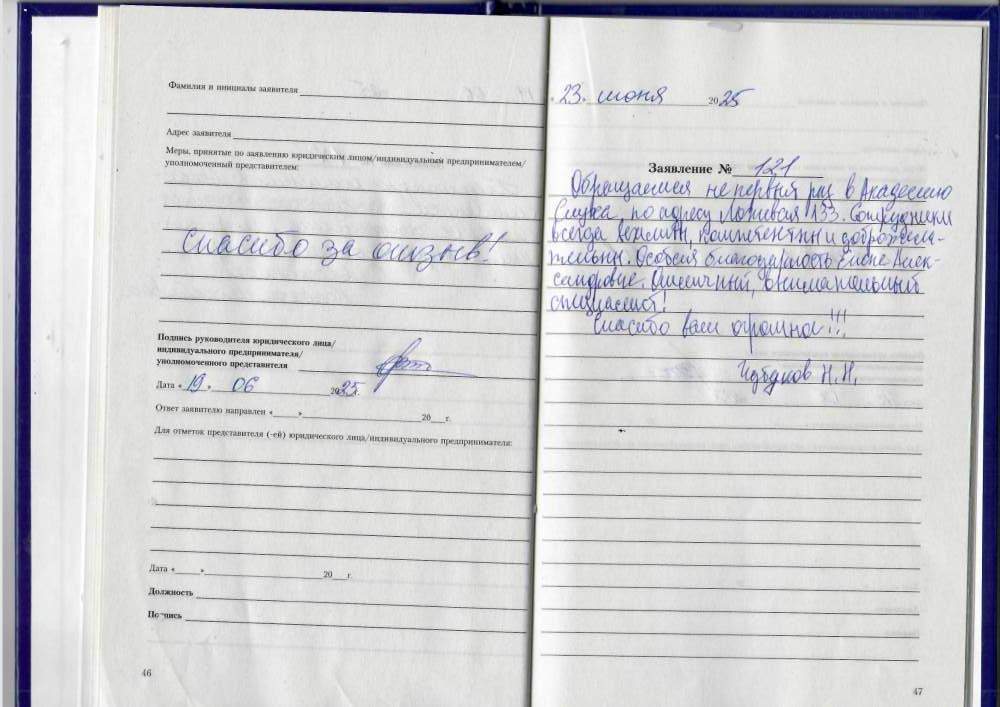 Фамилия и инициалы заявителя
Адрес заявителя
Меры, принятые по заявлению юридическим лицом/индивидуальным предпринимателем/
уполномоченный представителем:
Спасибо за отзыв!
Подпись руководителя юридического лица/
индивидуального предпринимателя/
уполномоченного представителя
Дата « 19 » 06 2025 г.
Ответ заявителю направлен «    » 20    г.
Для отметок представителя (-ей) юридического лица/индивидуального предпринимателя:
Дата «    » 20    г.
Должность
Подпись
46
23. июня 2025
Заявление № 121
Обращаемся не первый раз в Академию
Слуха, по адресу 133. Сотрудники
всегда вежливы, компетентны и доброжела-
тельны. Особая благодарность Елене Алек-
сандровне. Отличный, внимательный
специалист!
Спасибо вам огромное!!!
Н.Н.
47